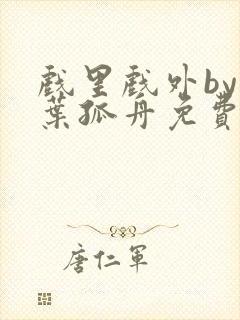 戲里戲外by
葉孤舟免費
唐仁軍